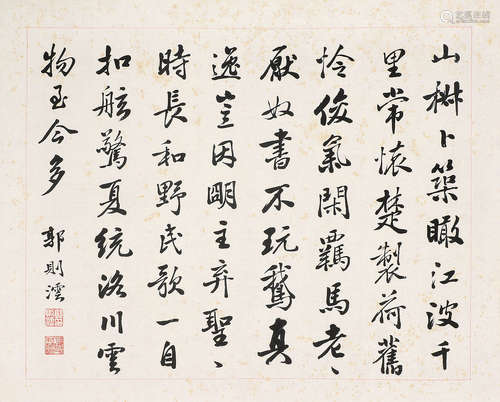 山椒卜築瞰江波千
里常懷楚製荷舊
怜俊氣閑羈馬老、
厭奴書不玩鵞真
逸豈因朙主弃聖、
時長和野民歌一自
扣舷驚夏統洛川雲
物至今多
郭則澐